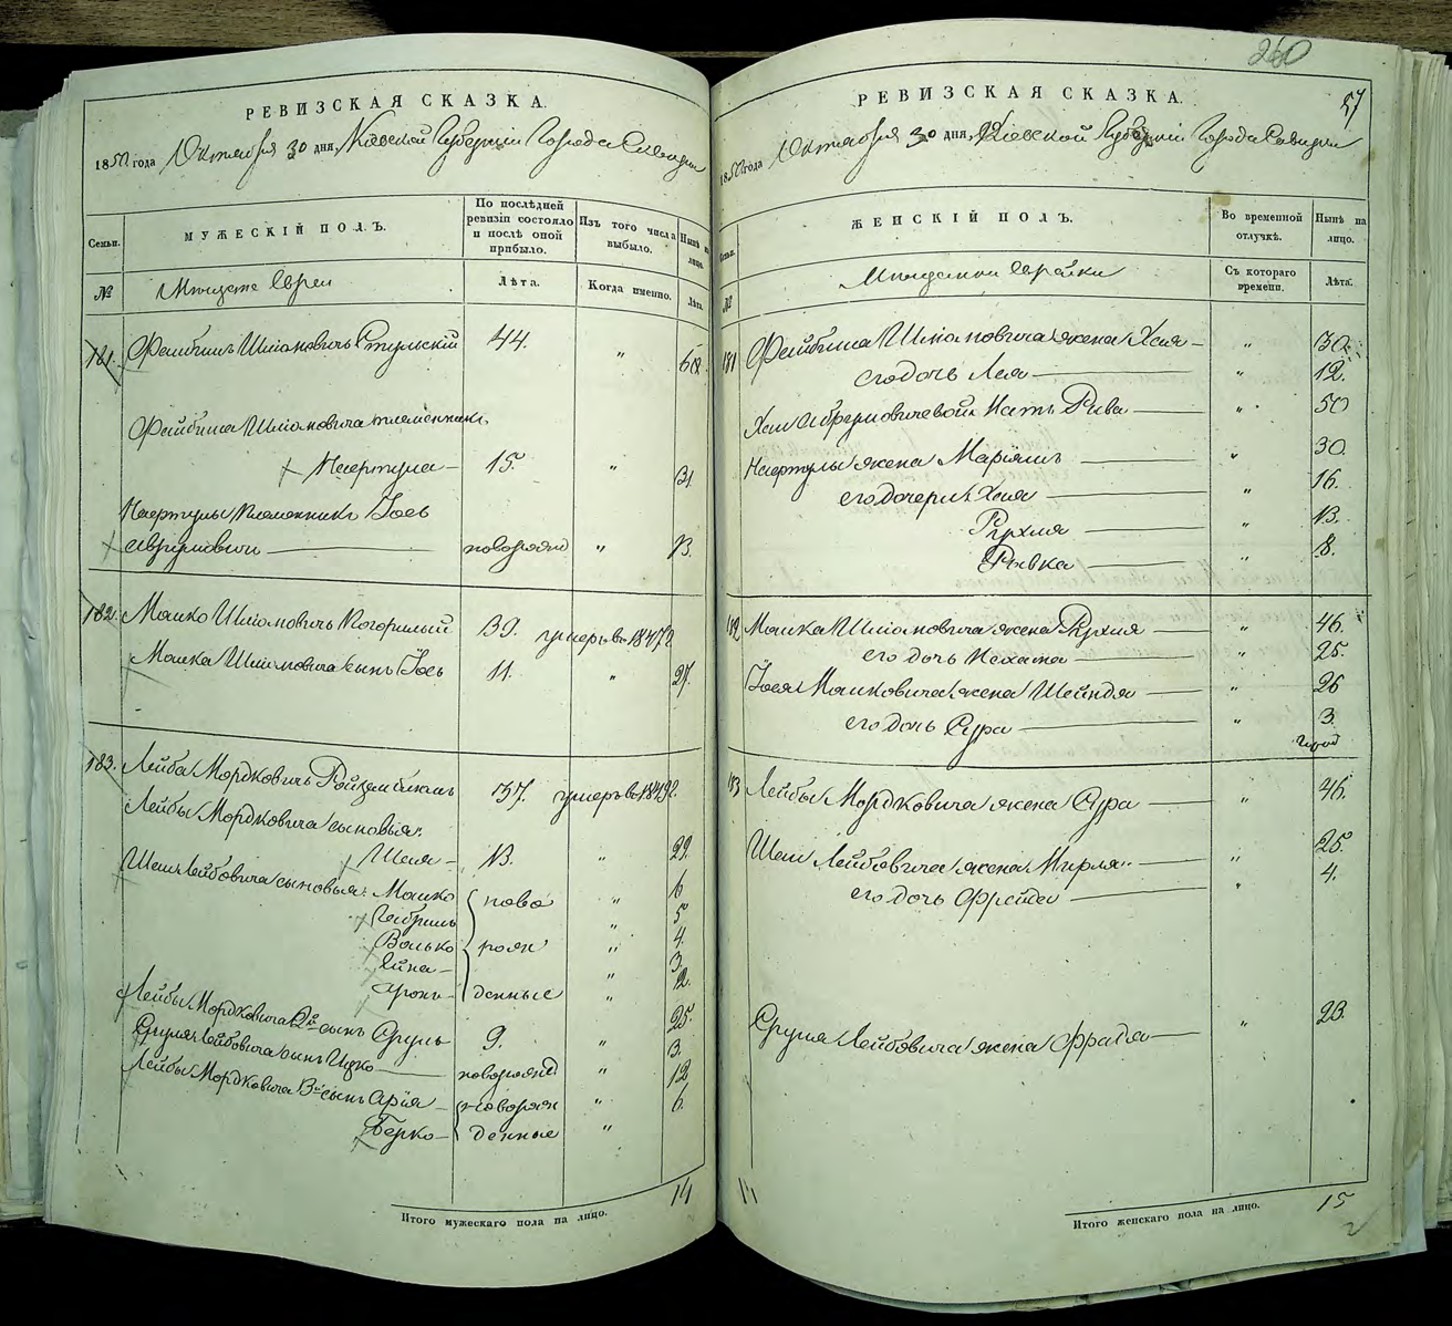 РЕВИЗСКАЯ СКАЗКА.
1850 года Октября 30 дня Кіевской Губерніи Города Сквиры
Семьи.
МУЖЕСКІЙ ПОЛЪ.
По послѣдней ревизіи состояло и послѣ оной прибыло.
Изъ того числа выбыло.
Нынѣ на лицо.
№
Мѣщане Евреи
Лѣта.
Когда именно.
Лѣта.
181. Файбишъ Шліомовичъ 44. " 60.
Файбиша Шліомовича племянникъ
Насртула 15. " 31
Насртулы племянникъ Іось
новорожд " 13.
182. Мошко Шліомовичъ Погорилый 39. умеръ въ 1847 г.
Мошка Шліомовича сынъ Іось 11. " 27.
183. Лейба Мордковичъ 37. умеръ въ 1849 г.
Лейбы Мордковича сыновья:
Шая 13. " 29.
Шаи Лейбовича сыновья: Мошко ново " 6
Габриль " 5
Волько рож " 4.
Ейна " 3.
Аронъ денные " 2.
Лейбы Мордковича 2й сынъ Сруль 9. " 25.
Сруля Лейбовича сынъ Ицко новорожд " 3.
Лейбы Мордковича 3й сынъ Арія новорож " 12
Берко денные " 6.
Итого мужескаго пола на лицо. 14
260
57
РЕВИЗСКАЯ СКАЗКА.
1850 года Октября 30 дня Кіевской Губерніи Города Сквиры
Семьи.
ЖЕНСКІЙ ПОЛЪ.
Во временной отлучкѣ.
Нынѣ на лицо.
№
Мѣщанки Еврейки
Съ котораго времени.
Лѣта.
181 Файбиша Шліомовича жена Хая " 30.
его дочь Лея " 12.
Мать Рива " 50
Насртулы жена Маріямъ " 30.
его дочери: Хая " 16.
Рухля " 13.
Рывка " 8.
182 Мошка Шліомовича жена Рухля " 46.
его дочь Нехама " 25.
Іося Мошковича жена Шейндя " 26
его дочь Сура " 3.
183 Лейбы Мордковича жена Сура " 46.
Шаи Лейбовича жена Мирля " 25.
его дочь Фрейда " 4.
Сруля Лейбовича жена Фрайда " 23.
14
Итого женскаго пола на лицо. 15
2